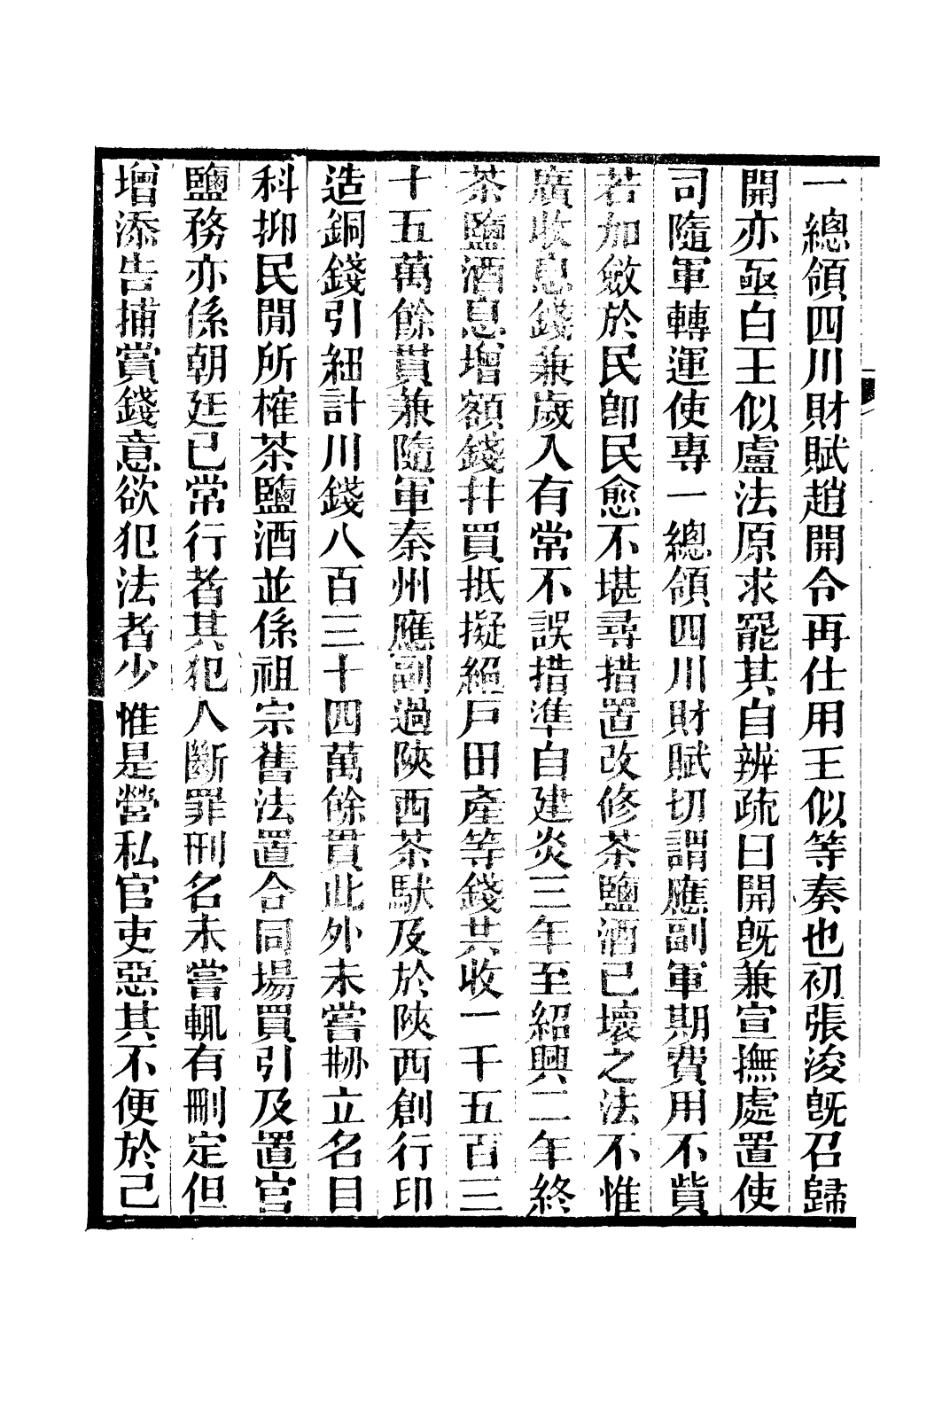 一總領四川財賦趙開令再仕用王似等奏也初張浚旣召歸
開亦亟白王似盧法原求罷其自辨疏曰開旣兼宣撫處置使
司隨軍轉運使專一總領四川財賦切謂應副軍期費用不貲
若加斂於民卽民愈不堪尋措置改修茶鹽酒已壞之法不惟
廣收息錢兼歲入有常不誤措準自建炎三年至紹興二年終
茶鹽酒息增額錢幷買抵擬絕戸田產等錢共收一千五百三
十五萬餘貫兼隨軍秦州應副過陜西茶馱及於陜西創行印
造銅錢引紐計川錢八百三十四萬餘貫此外未嘗刱立名目
科抑民閒所榷茶鹽酒並係祖宗舊法置合同場買引及置官
鹽務亦係朝廷已常行者其犯人斷罪刑名未嘗輒有刪定但
增添告捕賞錢意欲犯法者少惟是營私官吏惡其不便於己